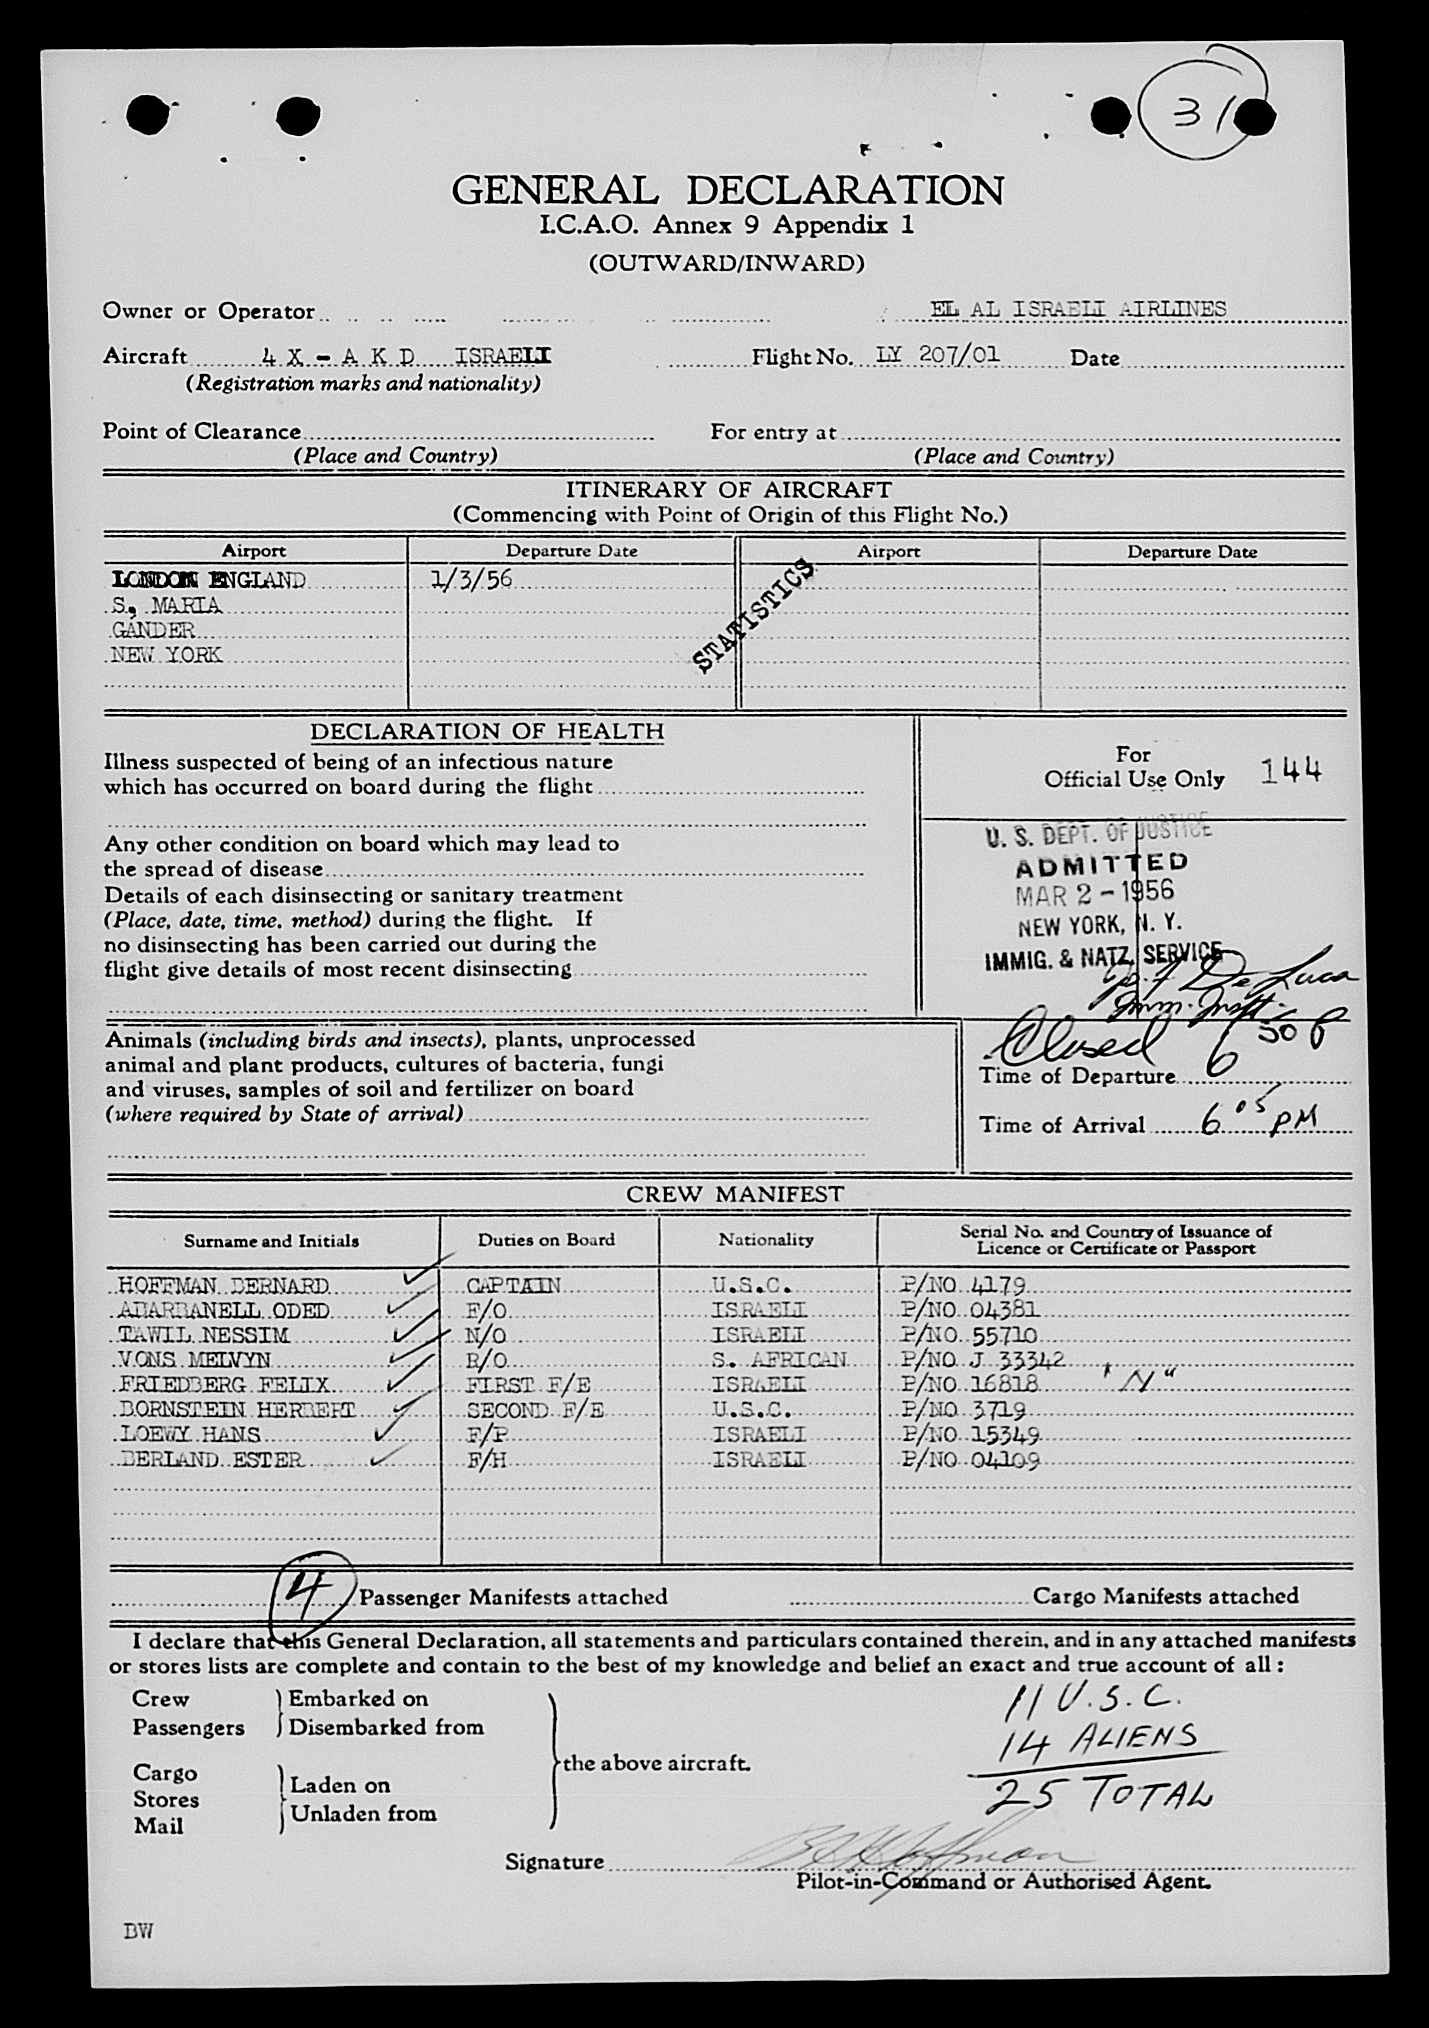 31
GENERAL DECLARATION
I.C.A.O. Annex 9 Appendix 1
(OUTWARD/INWARD)
Owner or Operator EL AL ISRAELI AIRLINES
Aircraft 4 X - A K D ISRAELI Flight No. LY 207/01 Date
(Registration marks and nationality)
Point of Clearance For entry at
(Place and Country) (Place and Country)
ITINERARY OF AIRCRAFT
(Commencing with Point of Origin of this Flight No.)
Airport Departure Date Airport Departure Date
LONDON ENGLAND 1/3/56
S, MARIA
GANDER
NEW YORK
STATISTICS
DECLARATION OF HEALTH
Illness suspected of being of an infectious nature
which has occurred on board during the flight
For
Official Use Only 144
Any other condition on board which may lead to
the spread of disease
Details of each disinsecting or sanitary treatment
(Place, date, time, method) during the flight. If
no disinsecting has been carried out during the
flight give details of most recent disinsecting
U. S. DEPT. OF JUSTICE
ADMITTED
MAR 2 - 1956
NEW YORK, N. Y.
IMMIG. & NATZ. SERVICE
De Luca
Imm. Inspt.
Animals (including birds and insects), plants, unprocessed
animal and plant products, cultures of bacteria, fungi
and viruses, samples of soil and fertilizer on board
(where required by State of arrival)
Closed 6 50 P
Time of Departure
Time of Arrival 6 05 PM
CREW MANIFEST
Surname and Initials Duties on Board Nationality Serial No. and Country of Issuance of
Licence or Certificate or Passport
HOFFMAN BERNARD CAPTAIN U.S.C. P/NO 4179
ABARBANELL ODED F/O ISRAELI P/NO 04381
TAWIL NESSIM N/O ISRAELI P/NO 55710
VONS MELVYN R/O S. AFRICAN P/NO J 33342
FRIEDBERG FELIX FIRST F/E ISRAELI P/NO 16818 "N"
BORNSTEIN HERBERT SECOND F/E U.S.C. P/NO 3719
LOEWY HANS F/P ISRAELI P/NO 15349
BERLAND ESTER F/H ISRAELI P/NO 04109
4 Passenger Manifests attached Cargo Manifests attached
I declare that this General Declaration, all statements and particulars contained therein, and in any attached manifests
or stores lists are complete and contain to the best of my knowledge and belief an exact and true account of all :
Crew Embarked on
Passengers Disembarked from
the above aircraft.
Cargo
Stores Laden on
Mail Unladen from
11 U.S.C.
14 ALIENS
25 TOTAL
Signature B Hoffman
Pilot-in-Command or Authorised Agent.
BW